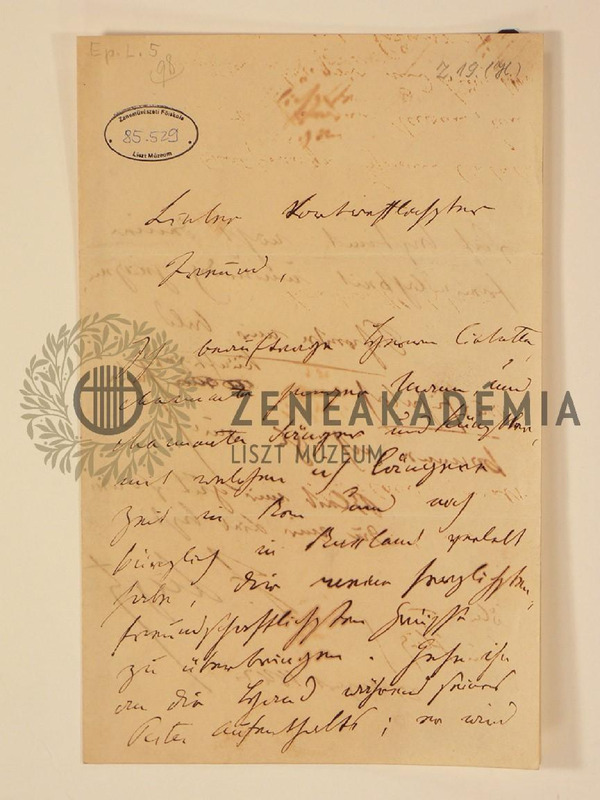 Ep. L. 5
98
Z. 19. (gl.)
Zeneművészeti Főiskola
85.529
Liszt Múzeum
Lieber Hochtrefflichster
Freund,
Ich beauftrage Herrn
charmanter junger Mann und
charmanter Sänger und Künstler,
mit welchem ich längere
Zeit in Rom und noch
kürzlich in Russland verlebt
habe, dir meine herzlichsten,
freundschaftlichsten Grüsse
zu überbringen. Gehe ihm
an die Hand während seines
Pester Aufenthalts; er wird
ZENEAKADÉMIA
LISZT MÚZEUM